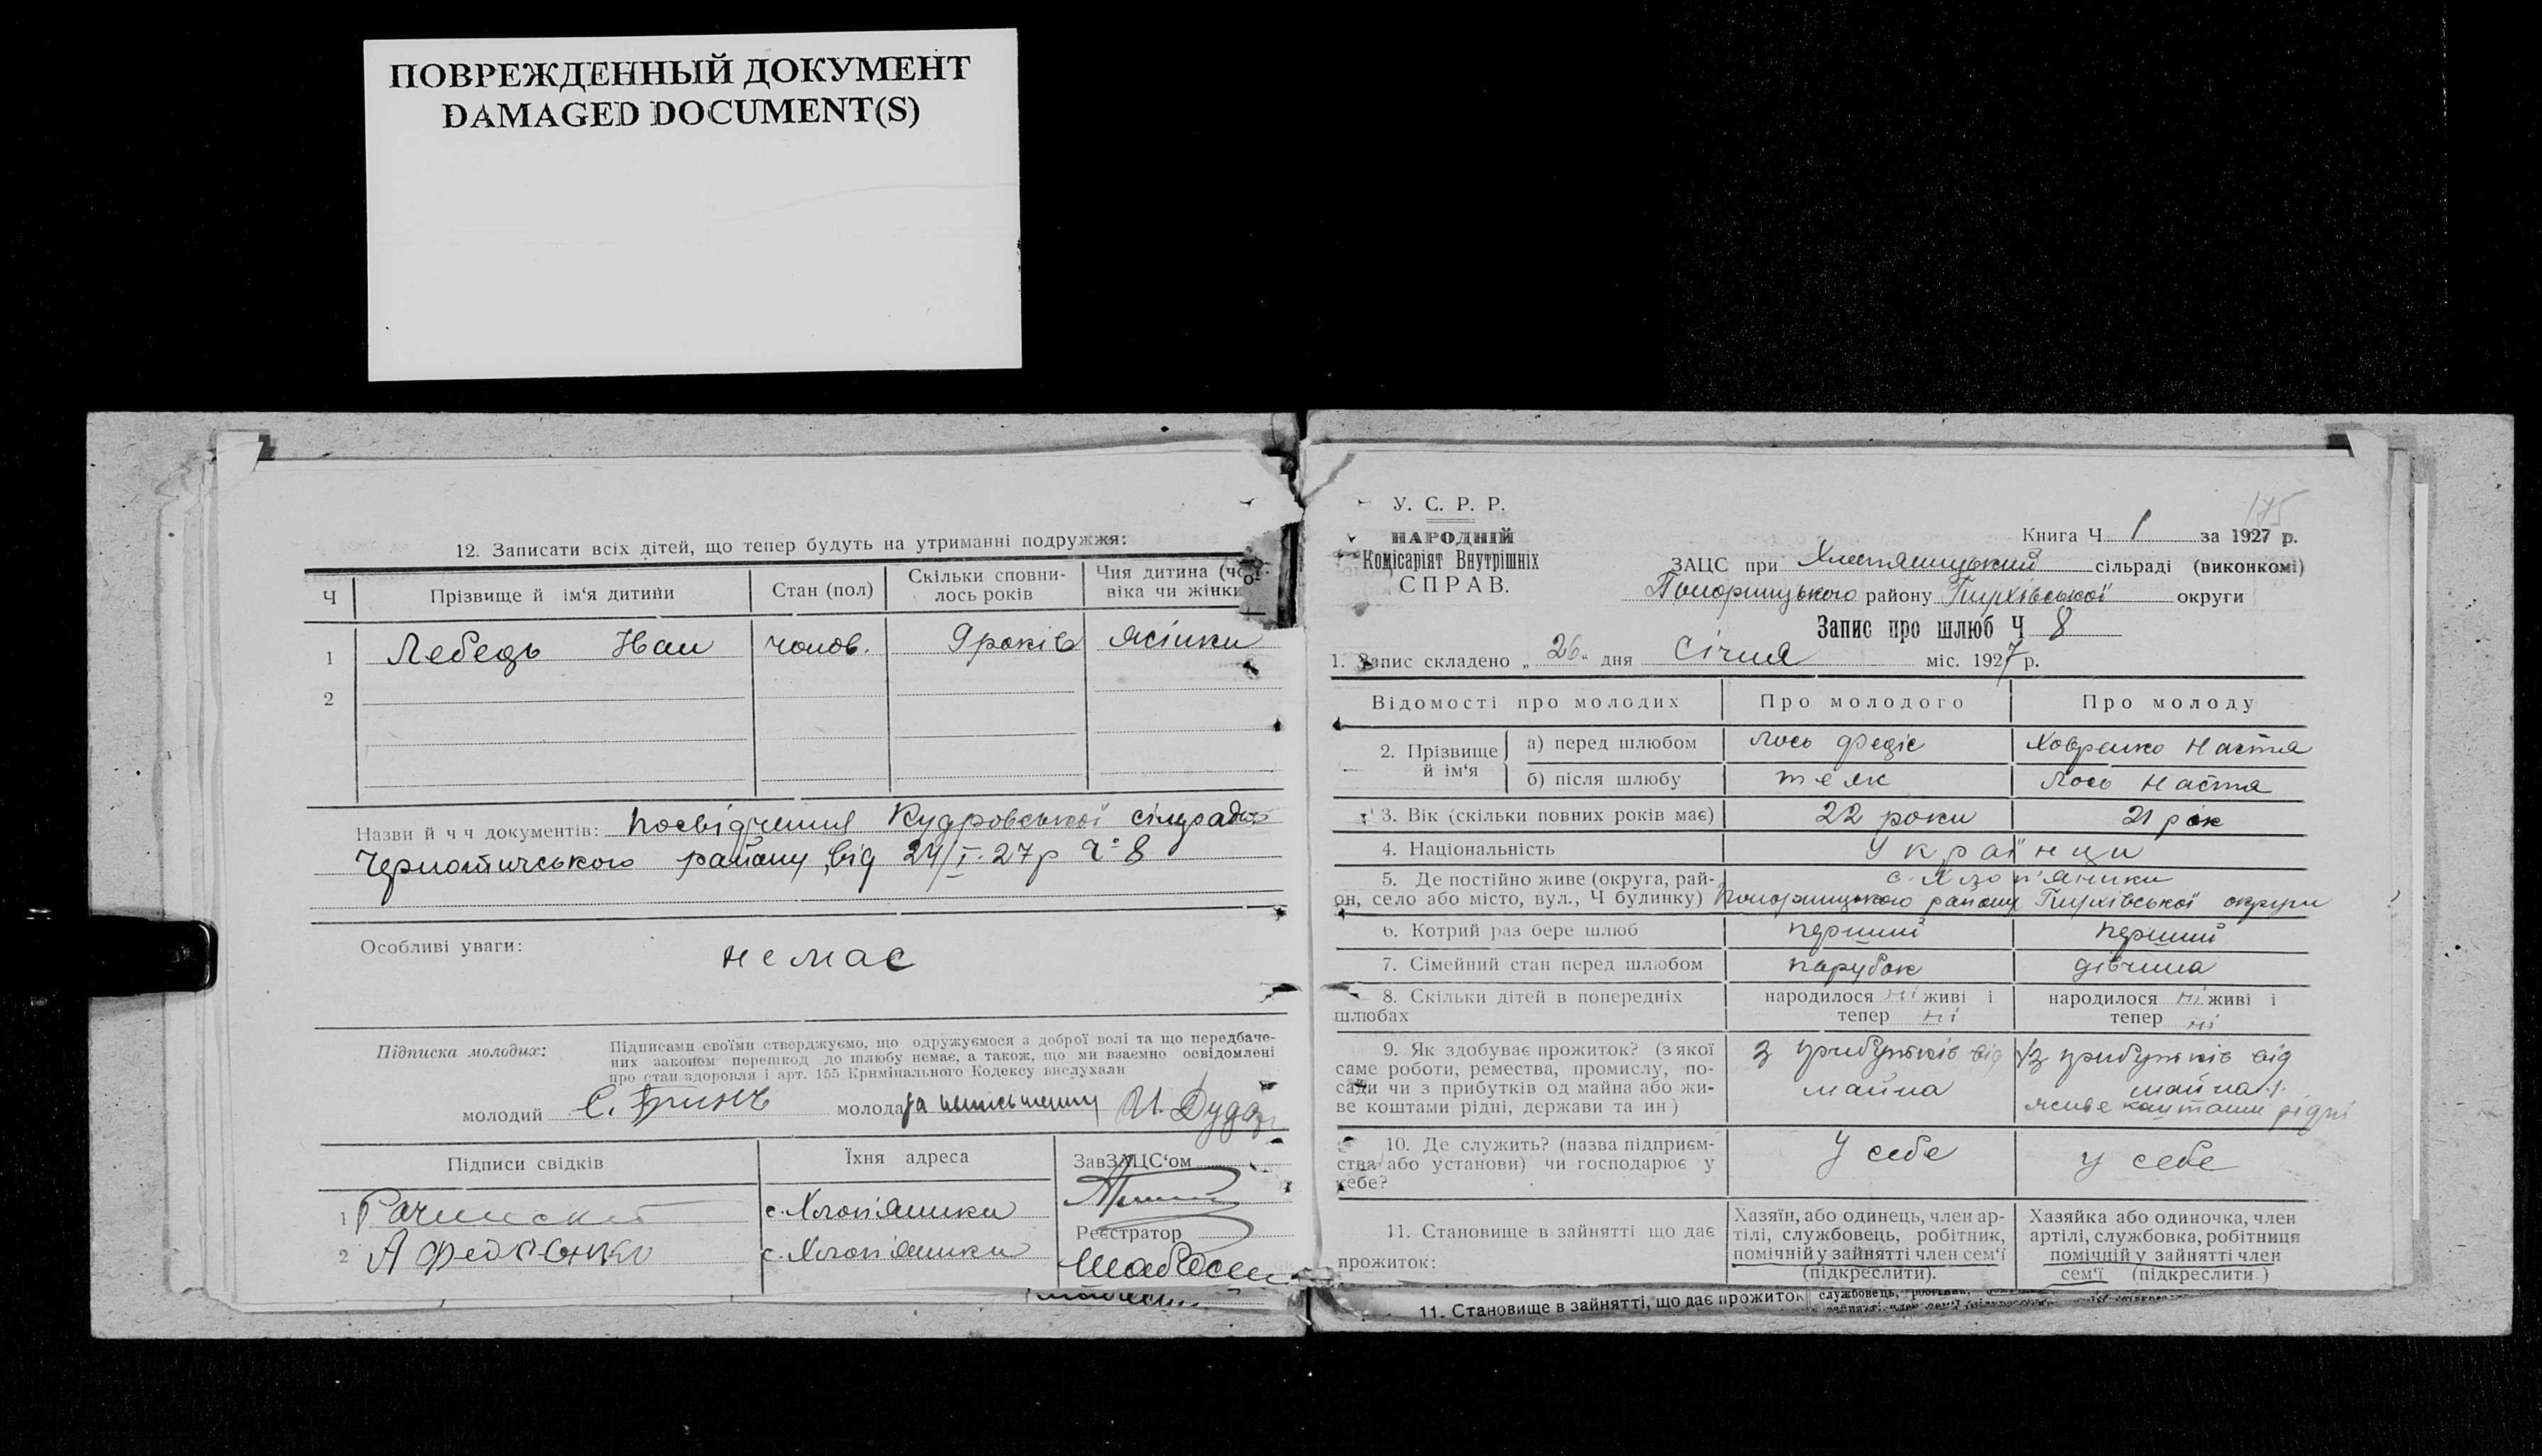 ПОВРЕЖДЕННЫЙ ДОКУМЕНТ
DAMAGED DOCUMENT(S)
12. Записати всіх дітей, що тепер будуть на утриманні подружжя:
Ч Прізвище й ім‘я дитини Стан (пол) Скільки сповнилось років Чия дитина (чоловіка чи жінки
1 Лебедь Іван чолов. 9 років жінки
2
Назви й ч ч документів: Посвідчення Кудровської сільради
Чернотичського району від 24/I-27р Ч 8
Особливі уваги: немає
Підписка молодих: Підписами своїми стверджуємо, що одружуємося з доброї волі та що передбаче-
них законом перешкод до шлюбу немає, а також, що ми взаємно освідомлені
про стан здоровля і арт. 155 Кримінального Кодексу вислухали
молодий С. Гринь молода за неписьменну И. Дуда
Підписи свідків Їхня адреса ЗавЗАЦС‘ом
1 Рачинский с. Хлоп'яники
Реєстратор
2 А Федосенко с. Хлоп'яники
175
У. С. Р. Р.
НАРОДНІЙ
Комісаріят Внутрішніх
СПРАВ.
Книга Ч 1 за 1927 р.
ЗАЦС при сільраді (виконкомі)
Понорницького району округи
Запис про шлюб Ч 8
1. Запис складено „26“ дня Січня міс. 1927 р.
Відомості про молодих Про молодого Про молоду
2. Прізвище й ім‘я а) перед шлюбом Лось Федіс Ховренко Настя
б) після шлюбу теж Лось Настя
3. Вік (скільки повних років має) 22 роки 21 рок
4. Національність Українци
5. Де постійно живе (округа, рай- с. Хлоп'яники
он, село або місто, вул., Ч будинку) Понорницького району округи
6. Котрий раз бере шлюб перший перший
7. Сімейний стан перед шлюбом парубок дівчина
8. Скільки дітей в попередніх народилося ні живі і народилося ні живі і
шлюбах тепер ні тепер ні
9. Як здобуває прожиток? (з якої з прибутків від з прибутків від
саме роботи, ремества, промислу, по- майна майна
сади чи з прибутків од майна або жи- живе коштами рідні
ве коштами рідні, держави та ин)
10. Де служить? (назва підприєм- У себе у себе
ства або установи) чи господарює у
себе?
11. Становище в зайнятті що дає
прожиток:
Хазяїн, або одинець, член ар-
тілі, службовець, робітник,
помічній у зайнятті член сем‘ї
(підкреслити).
Хазяйка або одиночка, член
артілі, службовка, робітниця
помічній у зайнятті член
сем‘ї (підкреслити)
11. Становище в зайнятті, що дає прожиток